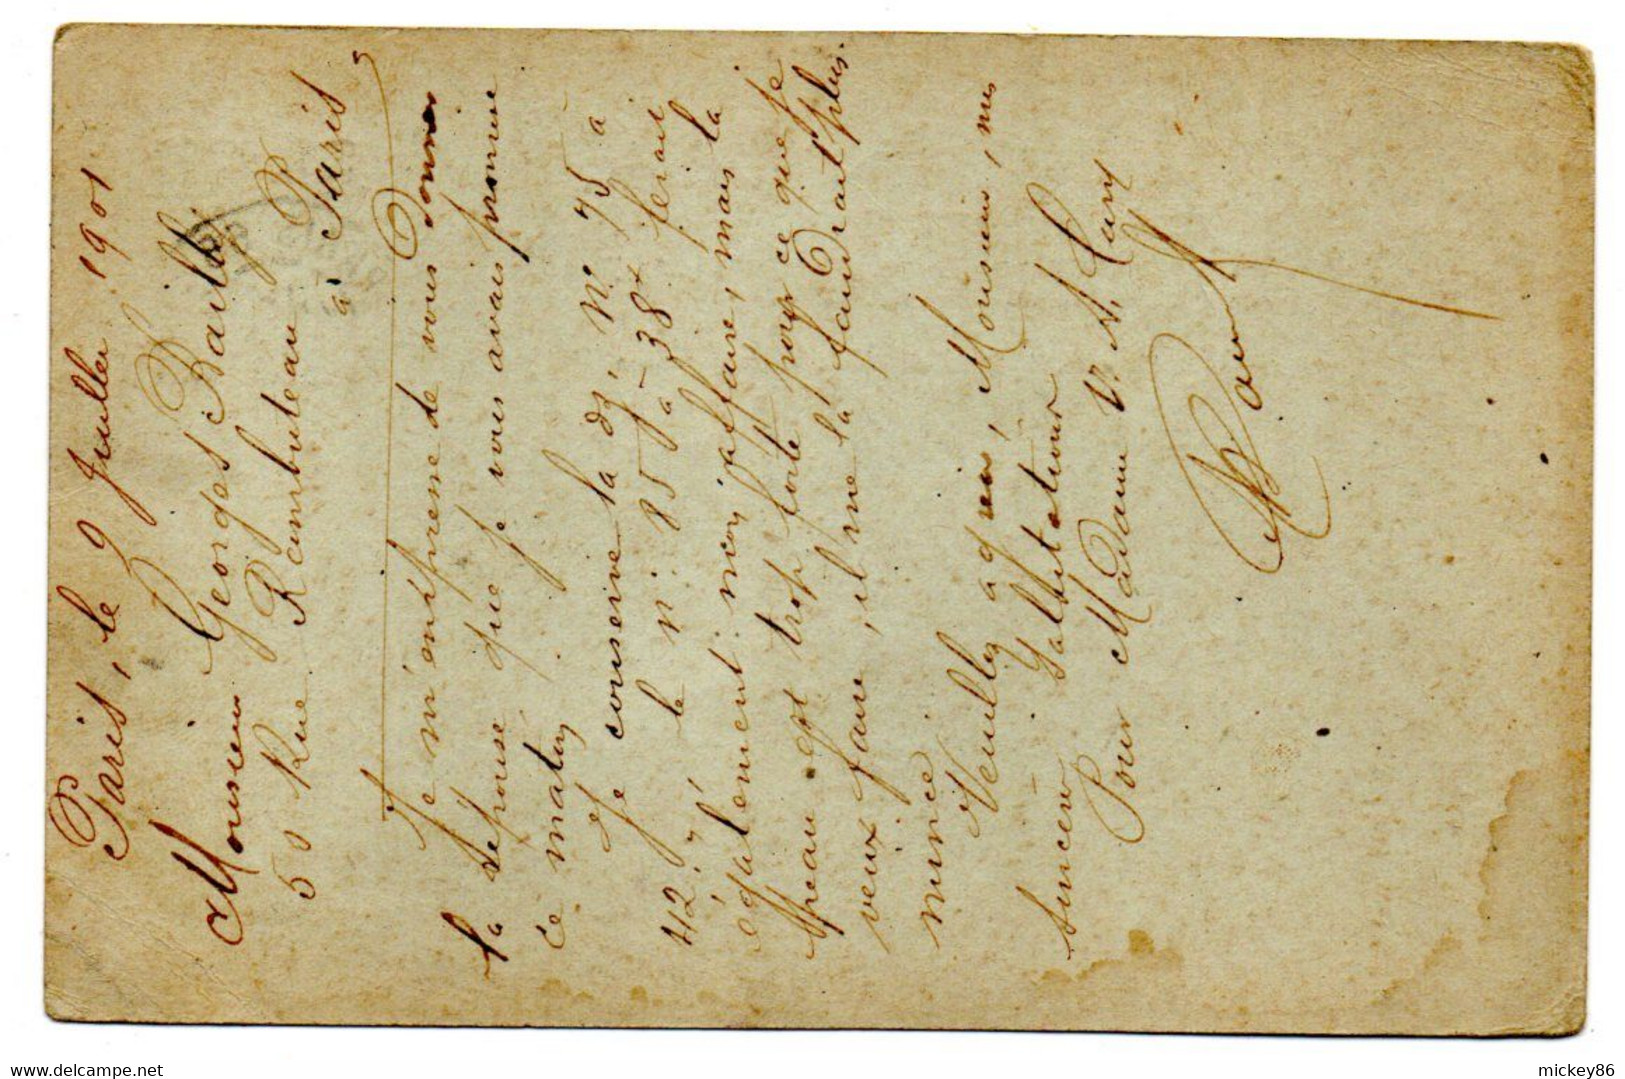 Paris, le 9 Juillet 1901
Monsieur Georges Bailly
50 Rue Rambuteau à Paris
Je m'enpresse de vous donner
la réponse que je vous avais promise
ce matin
Je conserve la dz. N° 75 à
42. le n° 85 à - 38 x ferait
également mon affaire, mais la
peau est trop forte pour ce que je
veux faire, il me la faudrait plus
mince
Veuillez agréer, Monsieur, mes
sincères Salutations
Pour Madame V. A.
mickey86
www.delcampe.net